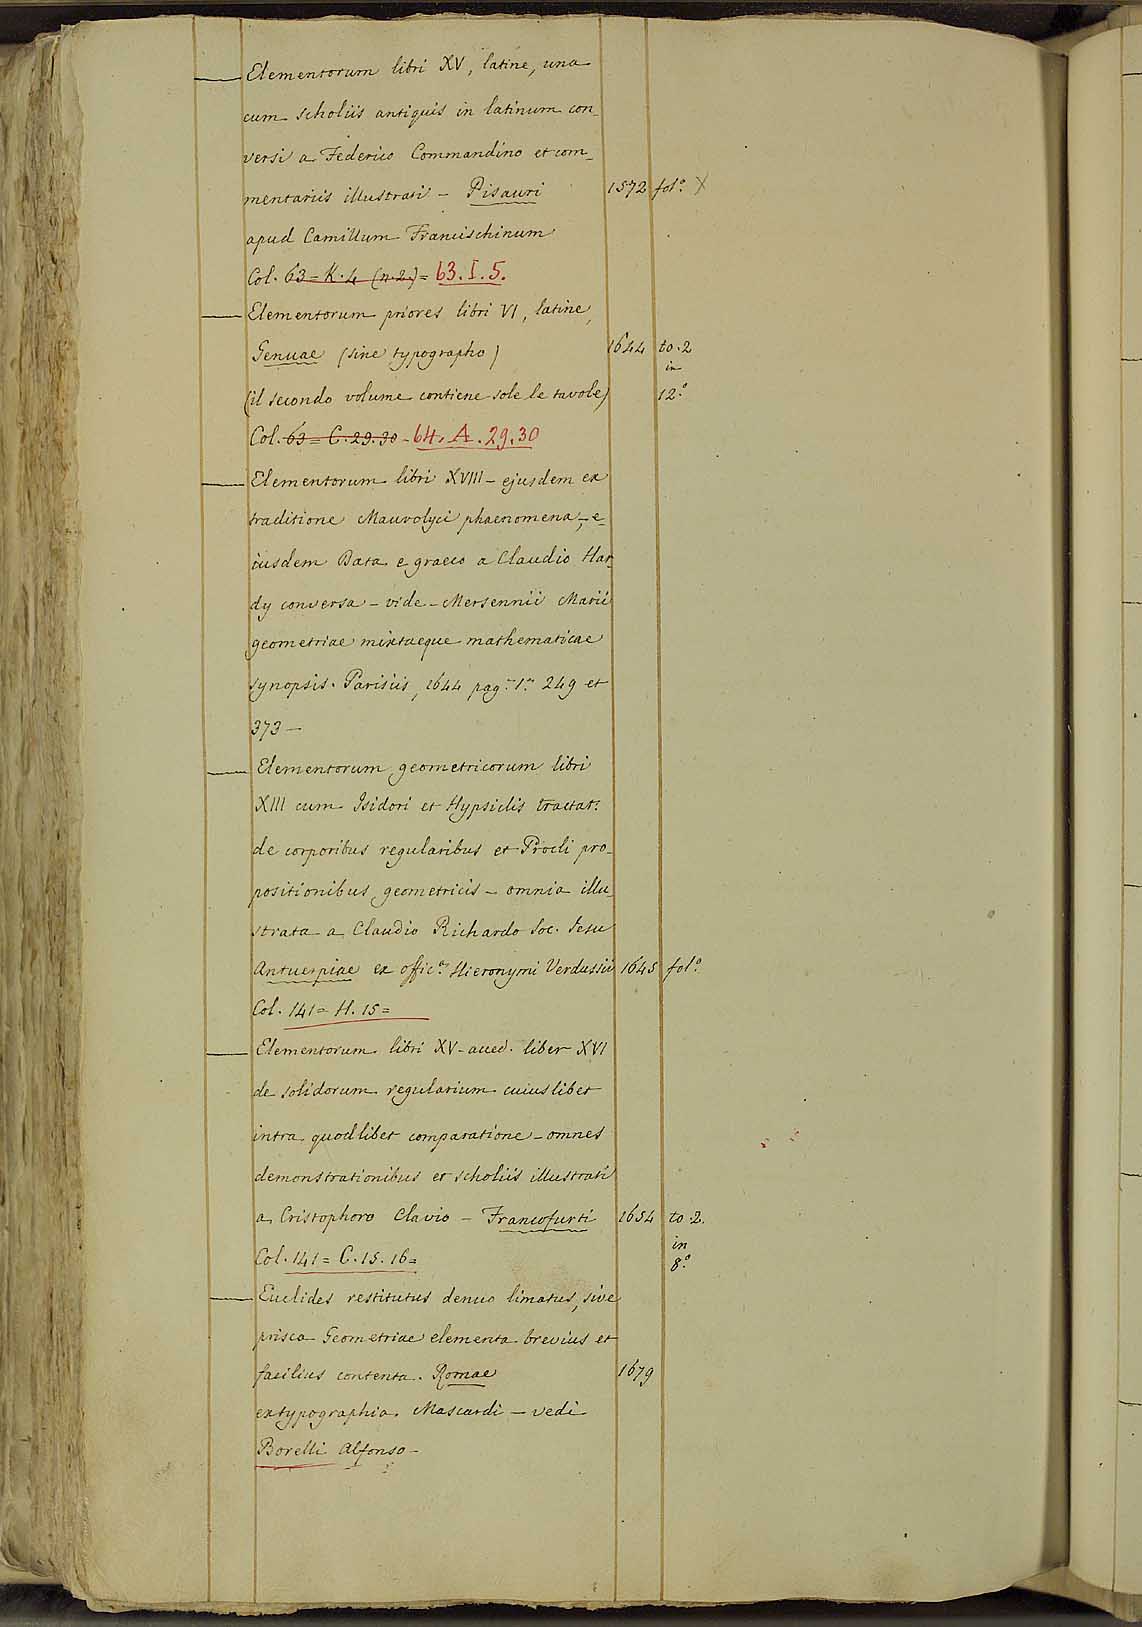 — Elementorum libri XV, latine, una
cum scholiis antiquis in latinum con_
versi a Federico Commandino et com_
mentariis illustrati – Pisauri 1572 fol.º X
apud Camillum Francischinum
Col. 63 = K. 4 (n. 2.) = 63. I. 5.
— Elementorum priores libri VI, latine,
Genuae (sine typographo) 1644 to. 2
in
(il secondo volume contiene sole le tavole) 12.º
Col. 63 = C. 29. 30 – 64. A. 29. 30
— Elementorum libri XVIII – ejusdem ex
traditione Mauvolyci phaenomena, – e_
iusdem Data e graeco a Claudio Har_
dy conversa – vide – Mersennii Marii
geometriae mixtaeque mathematicae
synopsis. Parisiis, 1644 pag.ª 1.ª 249 et
373 –
— Elementorum geometricorum libri
XIII cum Isidori et Hypsiclis tractat.
de corporibus regularibus et Procli pro_
positionibus geometricis – omnia illu_
strata a Claudio Richardo Soc. Jesu
Antuerpiae ex offic.ª Hieronymi Verdussii 1645 fol.º
Col. 141 = H. 15 =
— Elementorum libri XV – acced. liber XVI
de solidorum regularium cuiuslibet
intra quodlibet comparatione – omnes
demonstrationibus et scholiis illustrati
a Cristophoro Clavio – Francofurti 1654 to. 2.
in
Col. 141 = C. 15. 16 = 8.º
— Euclides restitutus denuo limatus, sive
prisca Geometriae elementa brevius et
facilius contenta. Romae 1679
ex typographia Mascardi – vedi
Borelli Alfonso –